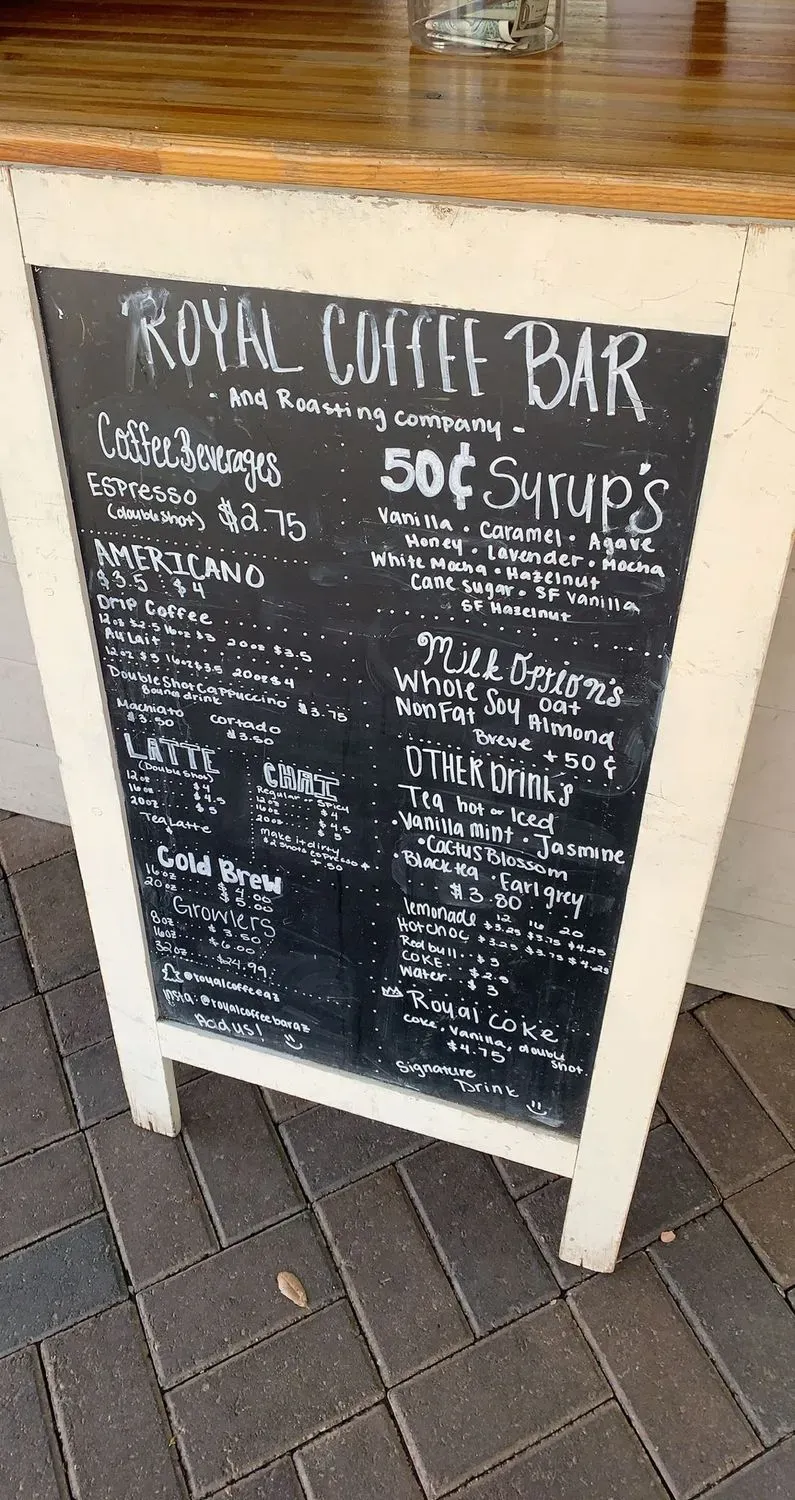 ROYAL COFFEE BAR
- And Roasting company -
Coffee Beverages
Espresso
(double shot) $2.75
AMERICANO
$3.5 $4
Drip Coffee
12oz $2.5 16oz $3 20oz $3.5
Au Lait
12oz $3 16oz $3.5 20oz $4
Double Shot Cappuccino $3.75
8ounce drink
Machiato cortado
$3.50 $3.50
LATTE
(Double shot)
12oz $4
16oz $4.5
20oz $5
Tea Latte
CHAI
Regular or Spicy
12oz $4
16oz $4.5
20oz $5
make it dirty
$2 shots espresso +
+ .50
Cold Brew
16oz $4.00
20oz $5.00
Growlers
8oz $3.50
16oz $6.00
32oz $24.99
@royalcoffeeaz
Insta: @royalcoffeebaraz
Add us!
50¢ Syrup's
Vanilla • Caramel • Agave
Honey • Lavender • Mocha
White Mocha • Hazelnut
Cane sugar • SF Vanilla
SF Hazelnut
Milk Option's
Whole Soy oat
NonFat Almond
Breve +50¢
OTHER Drinks
Tea hot or Iced
• Vanilla mint • Jasmine
• Cactus Blossom
• Black tea • Earl grey
$3.80
12 16 20
lemonade $3.25 $3.75 $4.25
Hot choc $3.25 $3.75 $4.25
Red bull.. $3
COKE.. $2.5
Water.. $3
Royal coke
coke, vanilla, double
$4.75 shot.
Signature
Drink